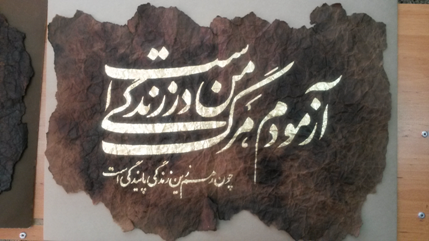 آزمودم مرگ من در زندگی است
چون رهم زین زندگی پایندگی است